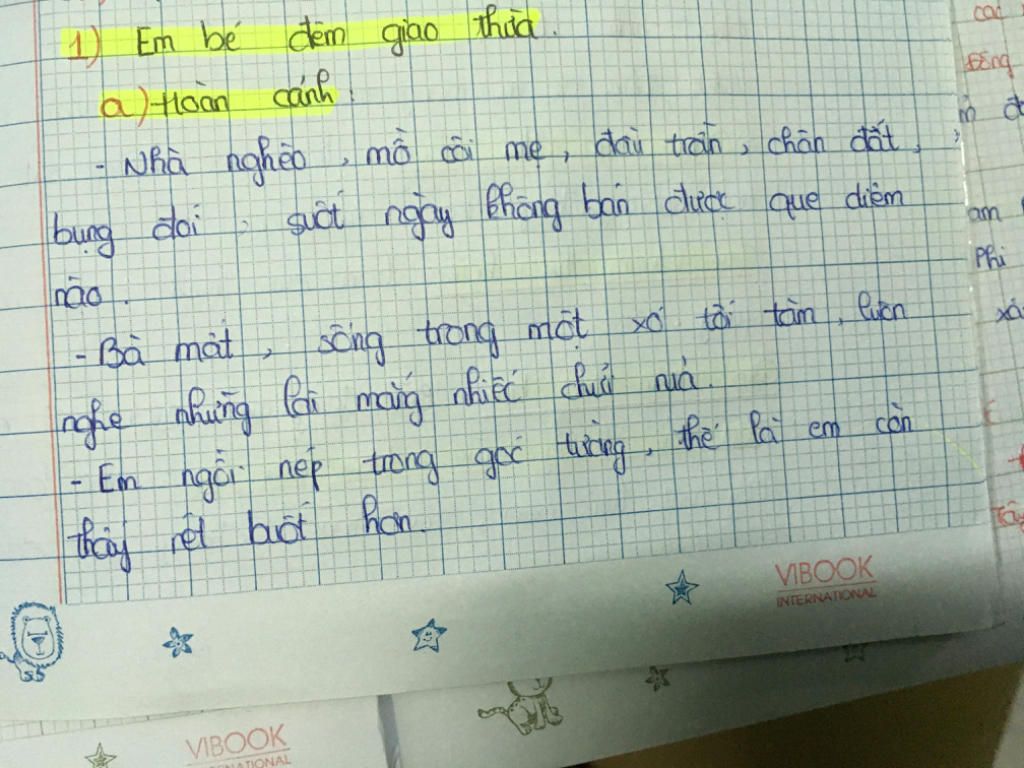 1) Em bé đêm giao thừa.
a) Hoàn cảnh:
- Nhà nghèo, mồ côi mẹ, đầu trần, chân đất,
bụng đói, suốt ngày không bán được que diêm
nào.
- Bà mất, sống trong một xó tối tăm, luôn
nghe những lời mắng nhiếc chửi rủa.
- Em ngồi nép trong góc tường, thế là em còn
thấy rét buốt hơn.
VIBOOK
INTERNATIONAL
VIBOOK
các
am
Phi